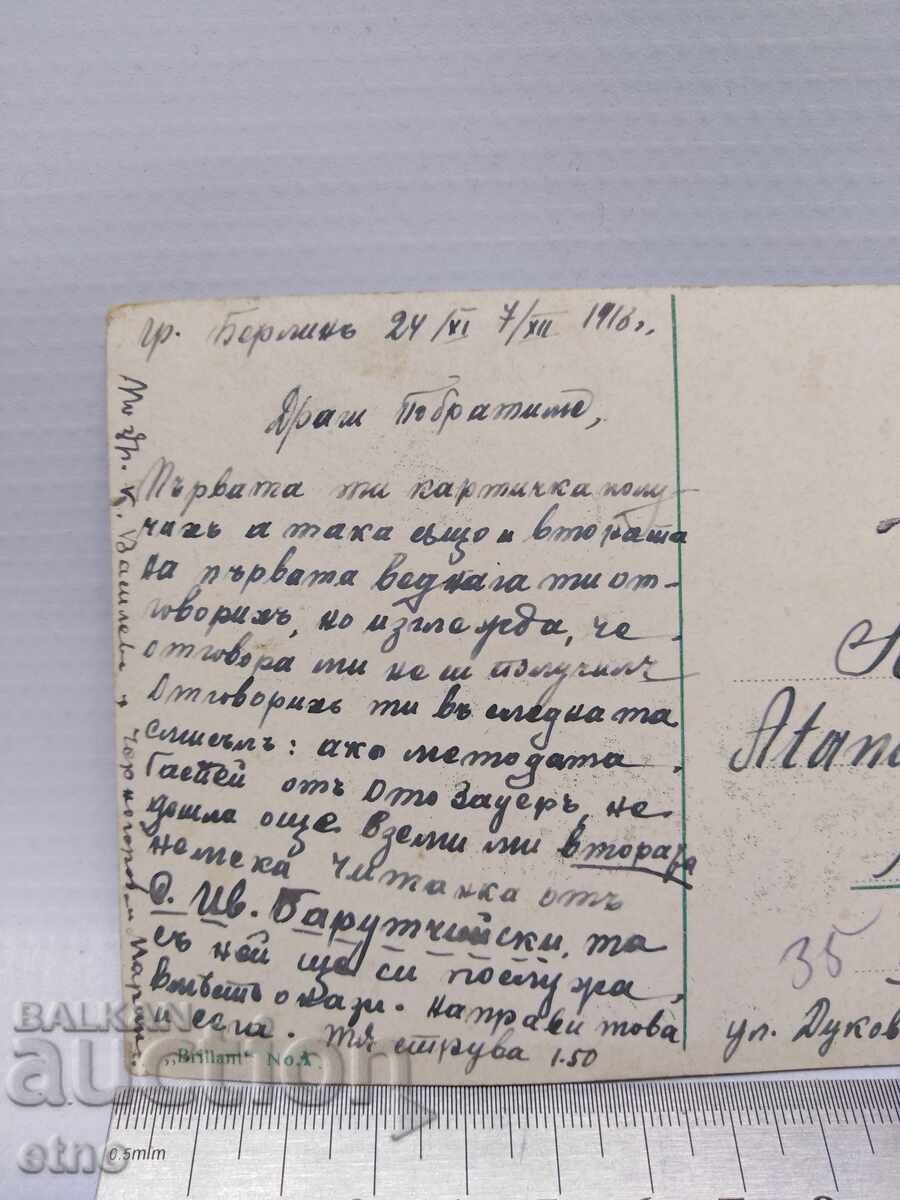 гр. Берлинъ 24/XI 7/XII 1918г.
Драги Побратиме,
Първата ти картичка полу-
чихъ а така също и втората
на първата веднага ти от-
говорихъ, но изглежда, че
отговора ми не си получилъ
Отговорихъ ти въ следната
смисълъ: ако методата
Гаспей отъ Ото Зауеръ, не
дошла още вземи ми втората
немска читанка отъ
С. Ив. Барутчийски, та
съ ней ще си послужа
вместъ онази. Направи това
и сега. Тя струва 1.50
Поздр. К. Василевъ
"Brillant" No. A.
Atana
35
ул. Дуков
BALKAN
auction
etno
0.5mm